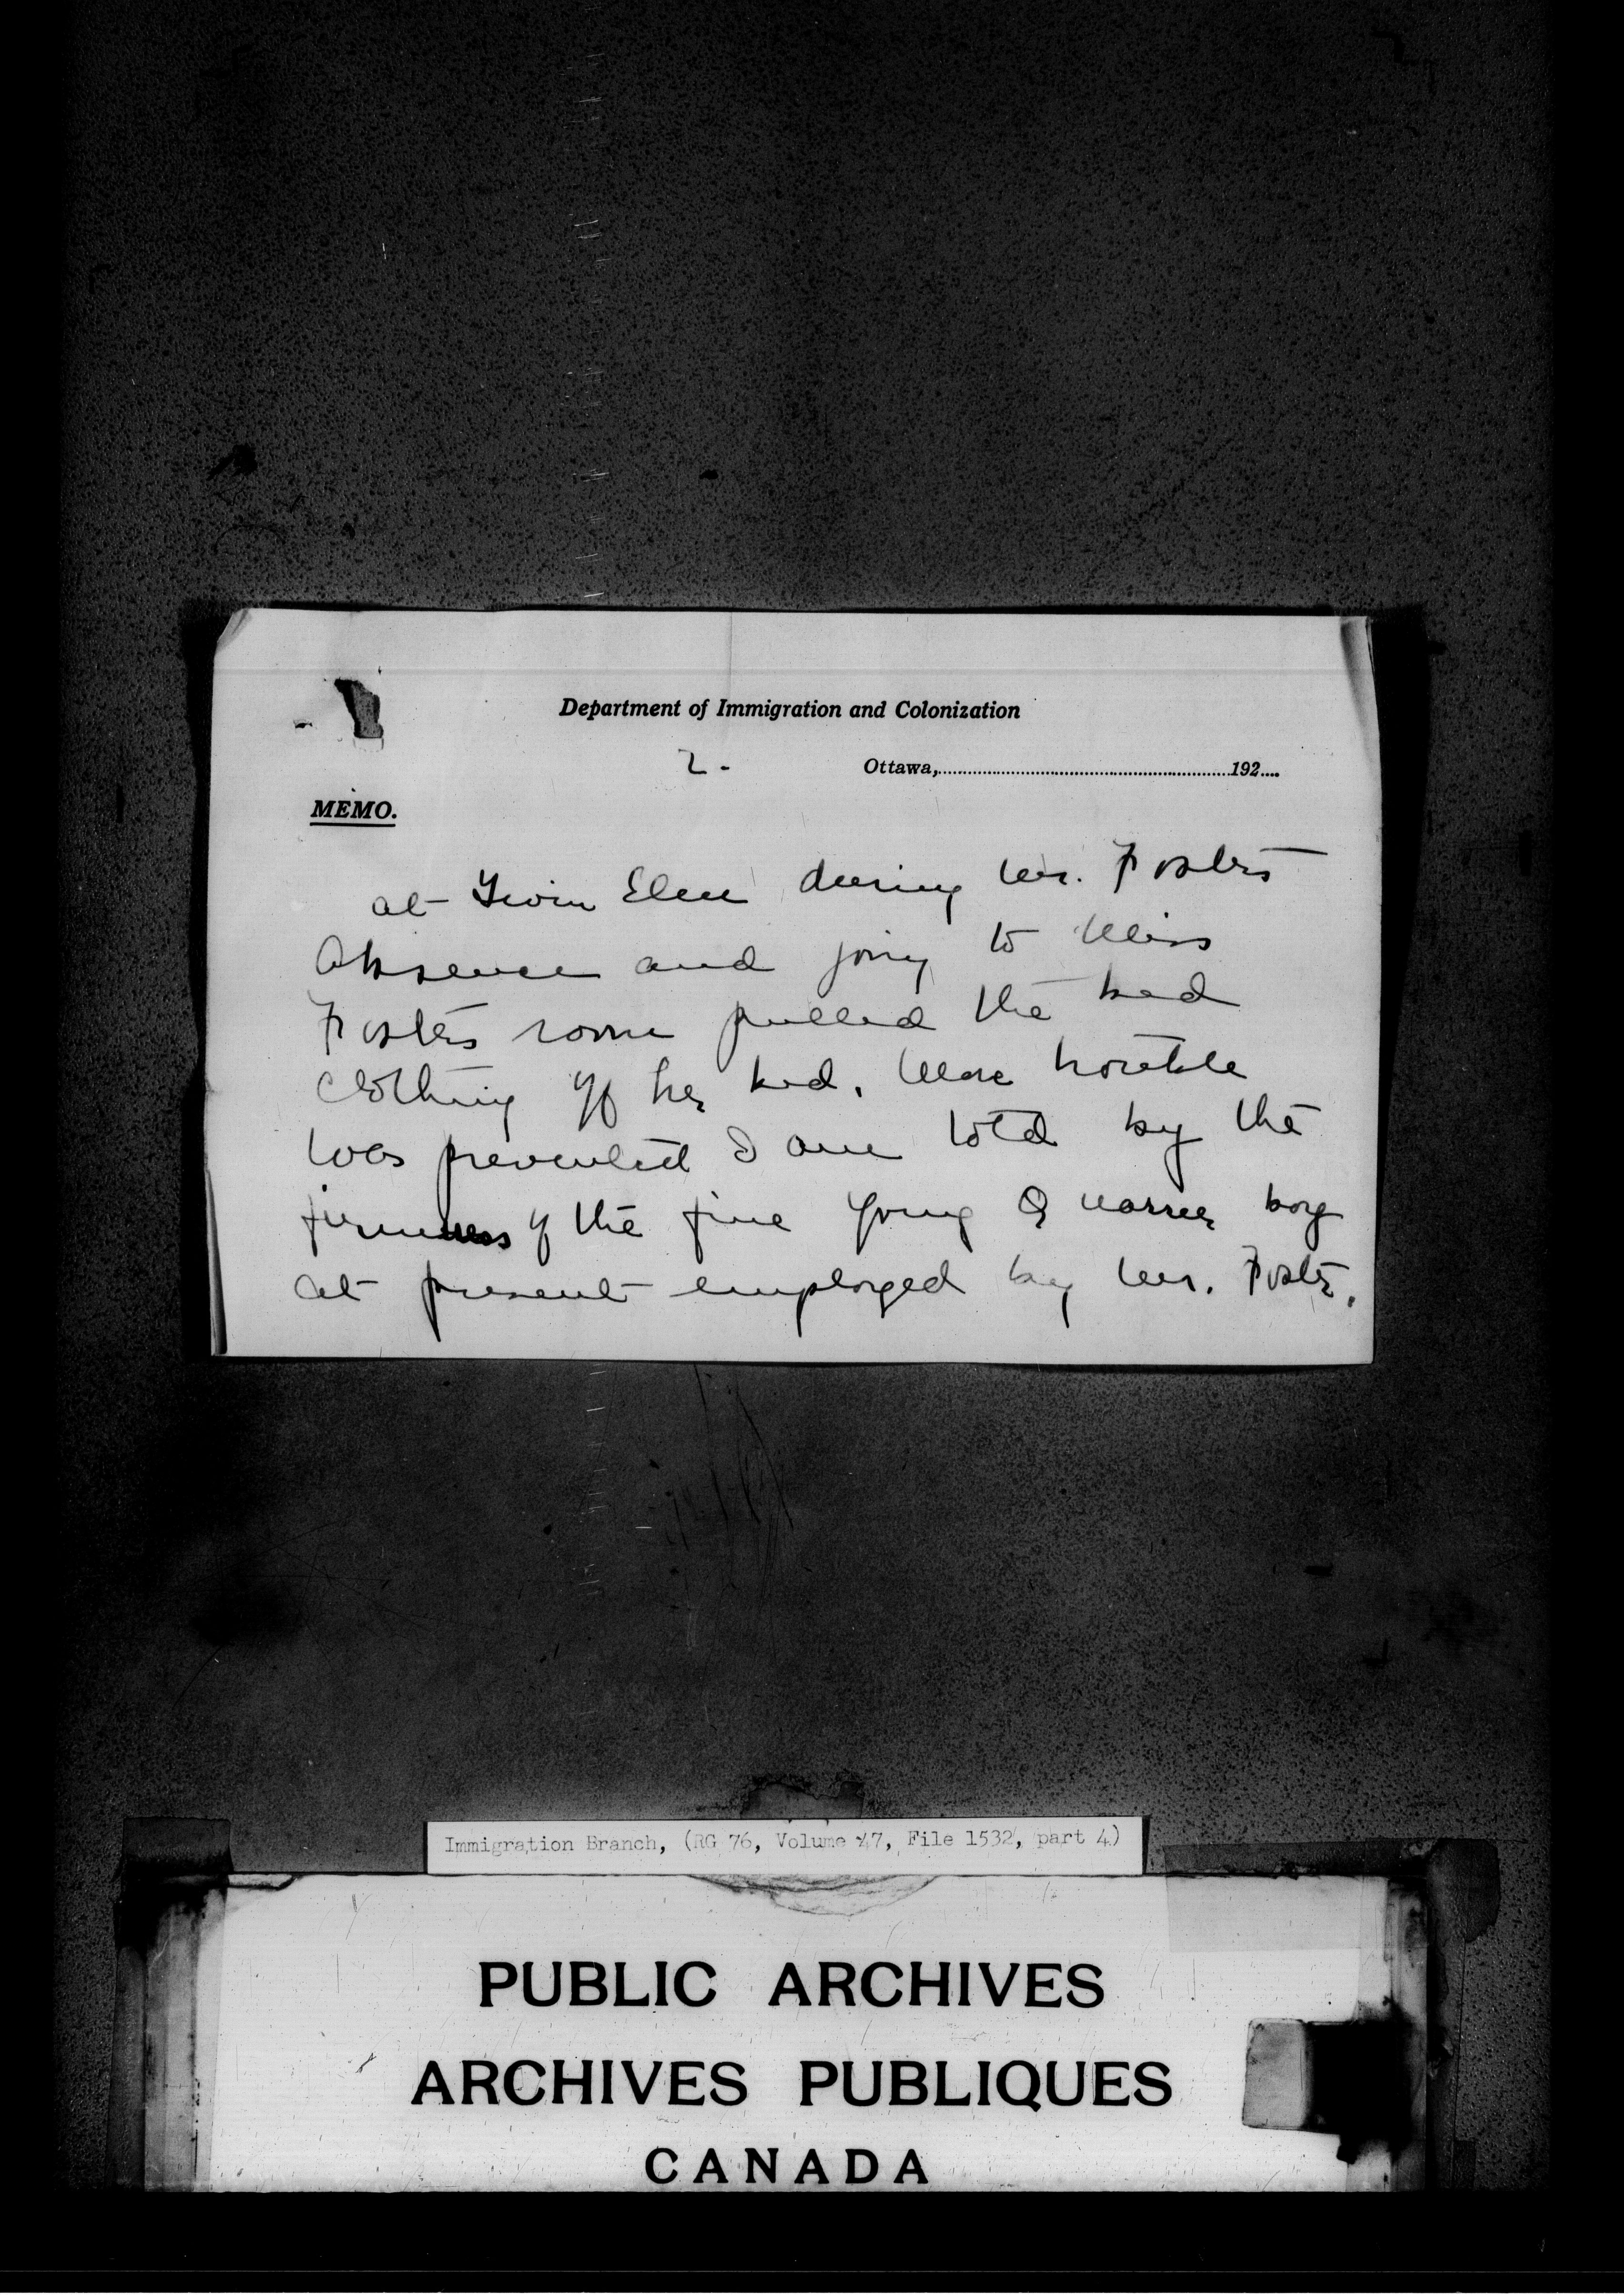 Department of Immigration and Colonization
2.
Ottawa,....................192....
MEMO.
at Twin Elm during Mr. Fosters
Absence and going to Miss
Fosters room pulled the bed
Clothing off her bed. More trouble
was prevented I am told by the
firmness of the fine young Q Warner boy
at present employed by Mr. Foster.
Immigration Branch, (RG 76, Volume 47, File 1532, part 4)
PUBLIC ARCHIVES
ARCHIVES PUBLIQUES
CANADA